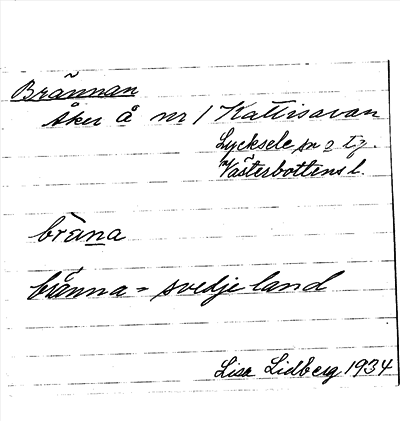 Brännan
Åker å nr 1 Kattisavan
Lycksele sn o tg.
Västerbottens l.
bràna
brånna = svedjeland
Lisa Lidberg 1934